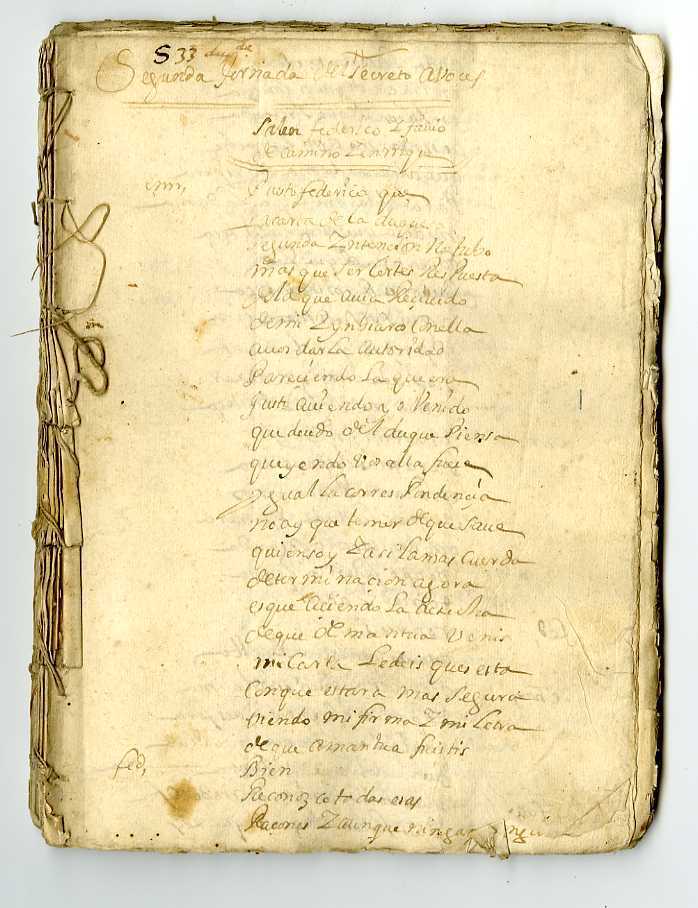 S 33
Segunda Jornada del Secreto a Voces
Salen federico y fauio
de camino y enrrique
enrr,
Puesto federico que
la carta de la duquesa
segunda yntencion No tubo
mas que ser Cortes Respuesta
de la que auia Reciuido
de mi y enbiaros Con ella
a cordar la autoridad
Pareciendo la que era
justo auiendo yo Venido
que deudo del duque Piensa
que yendo Vos alla fuese
ygual la correspondencia
no ay que temer de que Saue
quien soy y asi la mas Cuerda
determinacion agora
es que aciendo la desecha
de que de mantua Venis
mi Carta le deis que es esta
Con que estara mas Segura
Viendo mi firma y mi letra
de que a mantua fuistis
fed,
Bien
Reconozco todas esas
Raçones y aunque